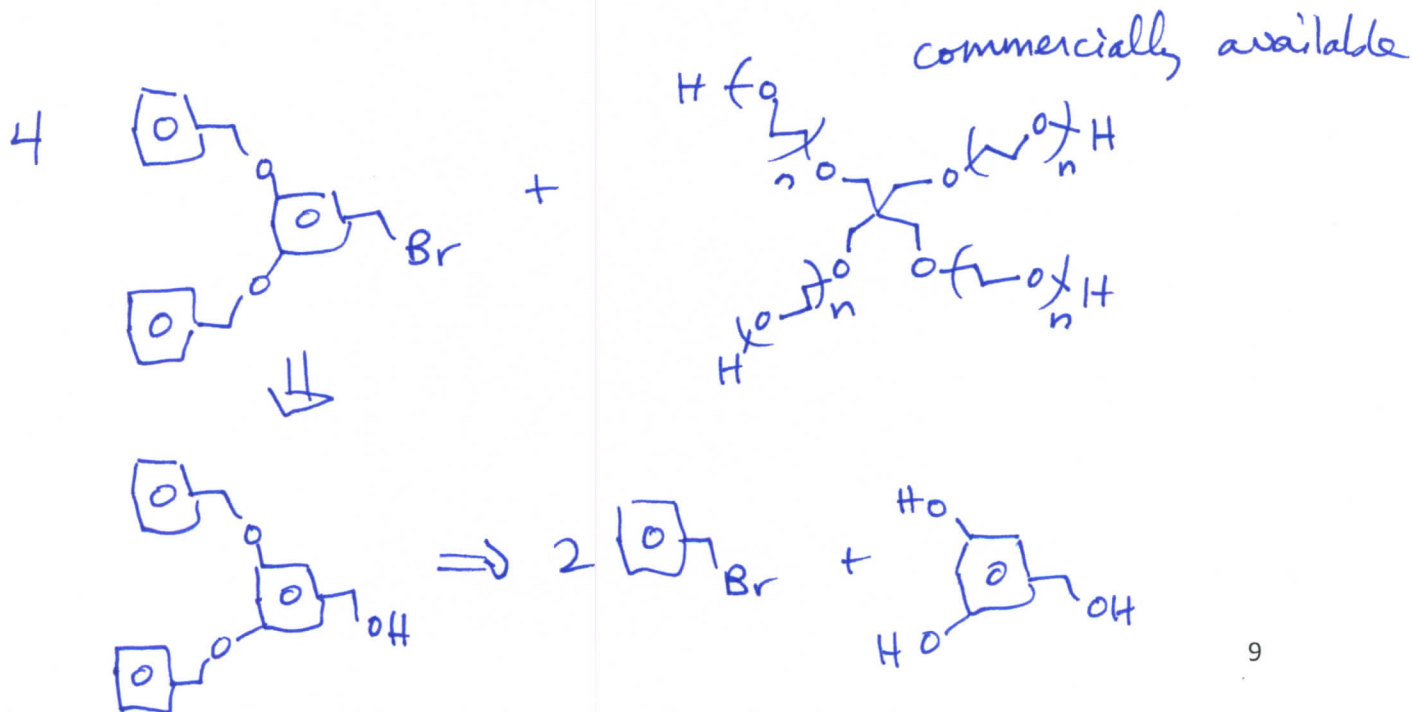 commercially available
4
O
O
O
Br
O
O
+
H (O
)n O
O ( O ) H
n
O
( O ) n
H
O ( O ) H
n
⇓
O
O
O
OH
O
O
⇒ 2
O
Br
+
HO
O
OH
HO
9